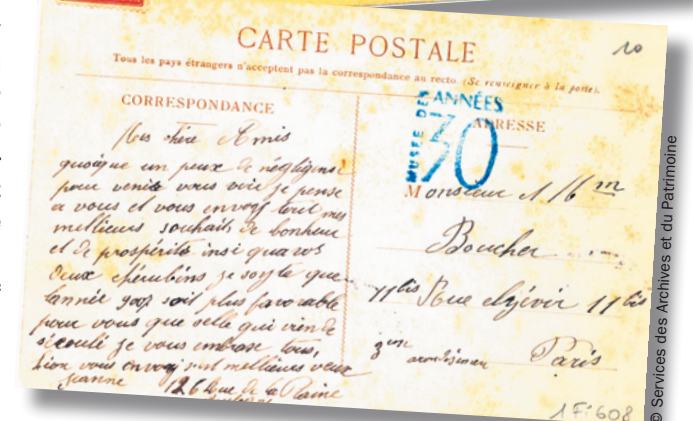 CARTE POSTALE
10
Tous les pays étrangers n'acceptent pas la correspondance au recto. (Se renseigner à la poste).
CORRESPONDANCE
Mes chère Amis
quoique un peux de négligense
pour venire vous voir je pense
a vous et vous envoye tout mes
mellieurs souhaits de bonheur
et de prospérité insi qua vos
deux chérubins je soyte que
lannée 1907 soit plus favorable
pour vous que selle qui vien de
sécoulé je vous embrase tous,
Lion vous envoy ses mellieures veux
Jeanne 126 Rue de la Plaine
MUSEE DES ANNÉES
30
ADRESSE
Monsieur &
Boucher
11 bis Rue Elzévir 11 bis
3eme arrondissemen Paris
1 Fi 608
© Services des Archives et du Patrimoine